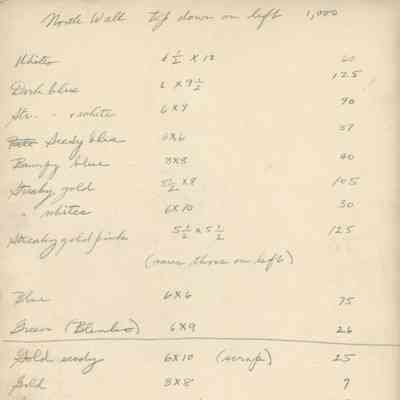 North Wall top down on left 1,000
Whites 6 1/2 x 12 60
Dark blue 6 x 9 1/2 125
Str. " + white 6 x 9 90
Seedy blue 6x6 57
Bumpy blue 8x8 40
Streaky gold 5 1/2 x 8 105
" whites 6x10 30
Streaky gold pink 5 1/2 x 5 1/2 125
( three on left)
Blue 6x6 75
Green (Blenko) 6x9 26
Gold seedy 6x10 (scrap) 25
Gold 8x8 7